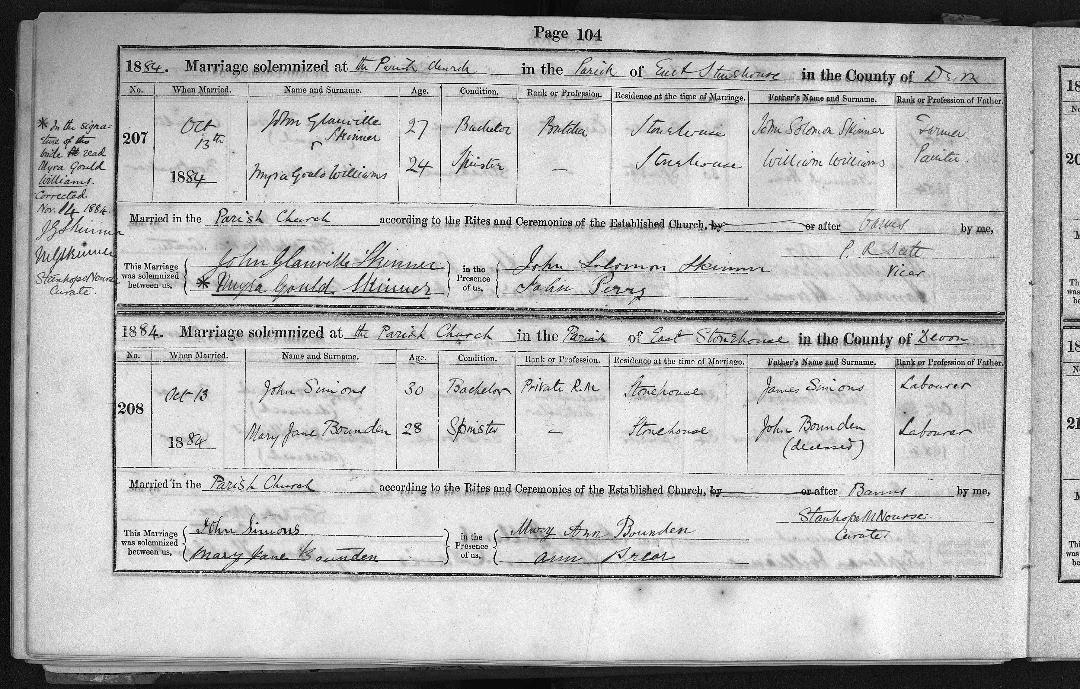 Page 104
1884. Marriage solemnized at the Parish Church in the Parish of East Stonehouse in the County of Devon
No. When Married. Name and Surname. Age. Condition. Rank or Profession. Residence at the time of Marriage. Father's Name and Surname. Rank or Profession of Father.
207 Oct 13th 1884 John Glanville Skinner 27 Bachelor Butcher Stonehouse John Solomon Skinner Farmer
Myra Gould Williams 24 Spinster — Stonehouse William Williams Painter
Married in the Parish Church according to the Rites and Ceremonies of the Established Church, by or after Banns by me,
P. R. Scott
Vicar
This Marriage was solemnized between us, John Glanville Skinner in the Presence of us, John Solomon Skinner
* Myra Gould Skinner John Perry
* In the signa-
ture of this
bride read
Myra Gould
Williams.
Corrected.
Nov. 14 1884.
J G Skinner
M G Skinner
Stanhope M Nourse
Curate.
1884. Marriage solemnized at the Parish Church in the Parish of East Stonehouse in the County of Devon
No. When Married. Name and Surname. Age. Condition. Rank or Profession. Residence at the time of Marriage. Father's Name and Surname. Rank or Profession of Father.
208 Oct 13 1884 John Simons 30 Bachelor Private R.M. Stonehouse James Simons Labourer
Mary Jane Bounden 28 Spinster — Stonehouse John Bounden (deceased) Labourer
Married in the Parish Church according to the Rites and Ceremonies of the Established Church, by or after Banns by me,
Stanhope M Nourse
Curate
This Marriage was solemnized between us, John Simons in the Presence of us, Mary Ann Bounden
Mary Jane Bounden Ann